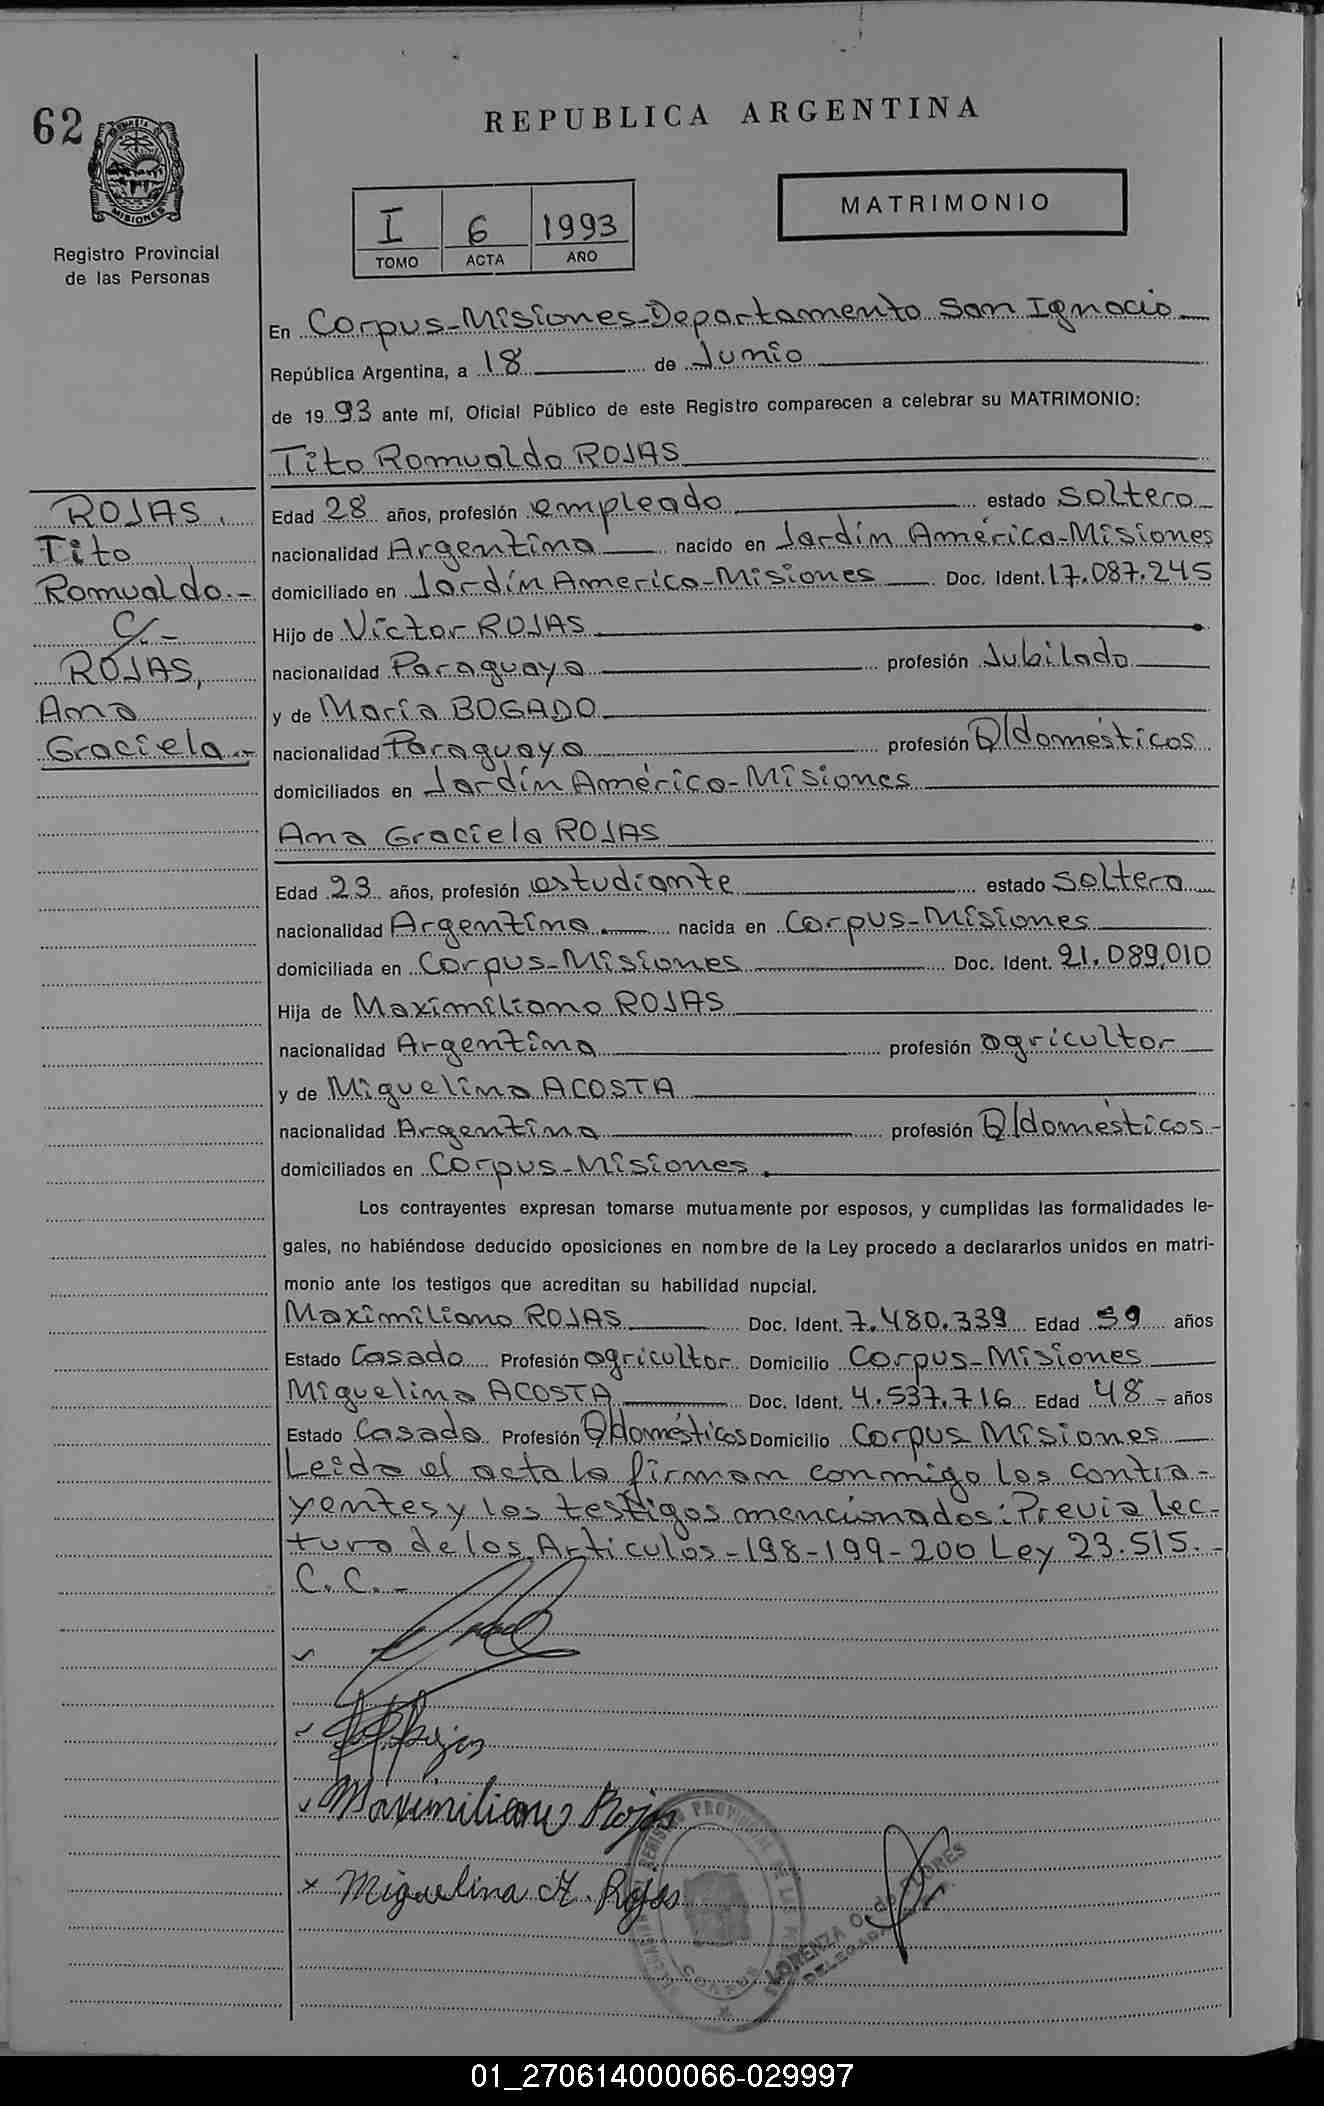 62
REPUBLICA ARGENTINA
MISIONES
Registro Provincial
de las Personas
I 6 1993
TOMO ACTA AÑO
MATRIMONIO
En Corpus-Misiones-Departamento San Ignacio
República Argentina, a 18 de Junio
de 1993 ante mí, Oficial Público de este Registro comparecen a celebrar su MATRIMONIO:
Tito Romualdo ROJAS
ROJAS,
Tito
Romualdo.-
C/.-
ROJAS,
Ana
Graciela.-
Edad 28 años, profesión empleado estado Soltero
nacionalidad Argentina nacido en Jardín América-Misiones
domiciliado en Jardín America-Misiones Doc. Ident. 17.087.245
Hijo de Víctor ROJAS
nacionalidad Paraguaya profesión Jubilado
y de María BOGADO
nacionalidad Paraguaya profesión Q/domésticos
domiciliados en Jardín América-Misiones
Ana Graciela ROJAS
Edad 23 años, profesión estudiante estado Soltera
nacionalidad Argentina nacida en Corpus-Misiones
domiciliada en Corpus-Misiones Doc. Ident. 21.089.010
Hija de Maximiliano ROJAS
nacionalidad Argentina profesión agricultor
y de Miguelina ACOSTA
nacionalidad Argentina profesión Q/domésticos-
domiciliados en Corpus-Misiones.
Los contrayentes expresan tomarse mutuamente por esposos, y cumplidas las formalidades le-
gales, no habiéndose deducido oposiciones en nombre de la Ley procedo a declararlos unidos en matri-
monio ante los testigos que acreditan su habilidad nupcial.
Maximiliano ROJAS Doc. Ident. 7.480.339 Edad 59 años
Estado Casado Profesión agricultor Domicilio Corpus-Misiones
Miguelina ACOSTA Doc. Ident. 4.537.716 Edad 48 - años
Estado Casada Profesión Q/domésticos Domicilio Corpus Misiones
Leida el acta la firman conmigo los contra-
yentes y los testigos mencionados: Previa lec-
tura de los Articulos-198-199-200 Ley 23.515.-
C.C.-
Rojas
Maximiliano Rojas
Miguelina A. Rojas
REGISTRO PROVINCIAL DE LAS
CORPUS
LORENZA O. de FLORES
DELEGADA
01_270614000066-029997